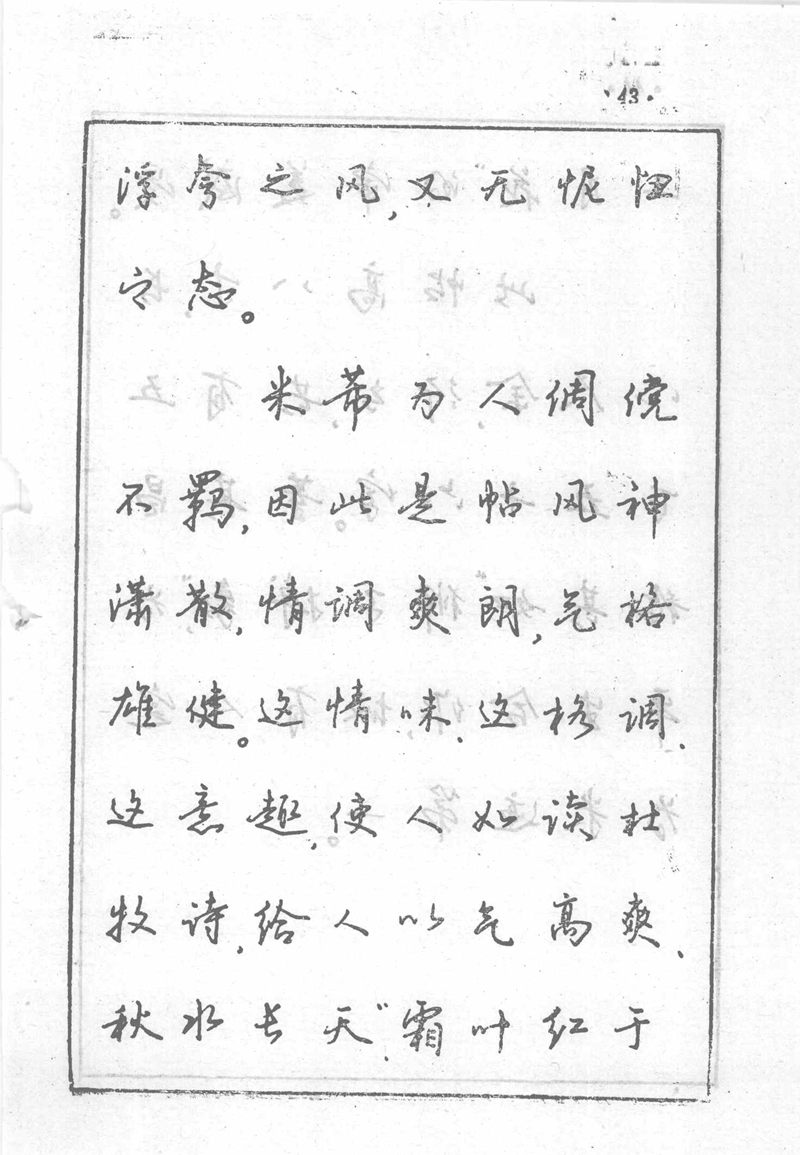 ·43·
浮夸之风,又无怩忸
之态。
米芾为人倜傥
不羁,因此是帖风神
潇散,情调爽朗,气格
雄健。这情味、这格调、
这意趣,使人如读杜
牧诗,给人以气高爽、
秋水长天、“霜叶红于